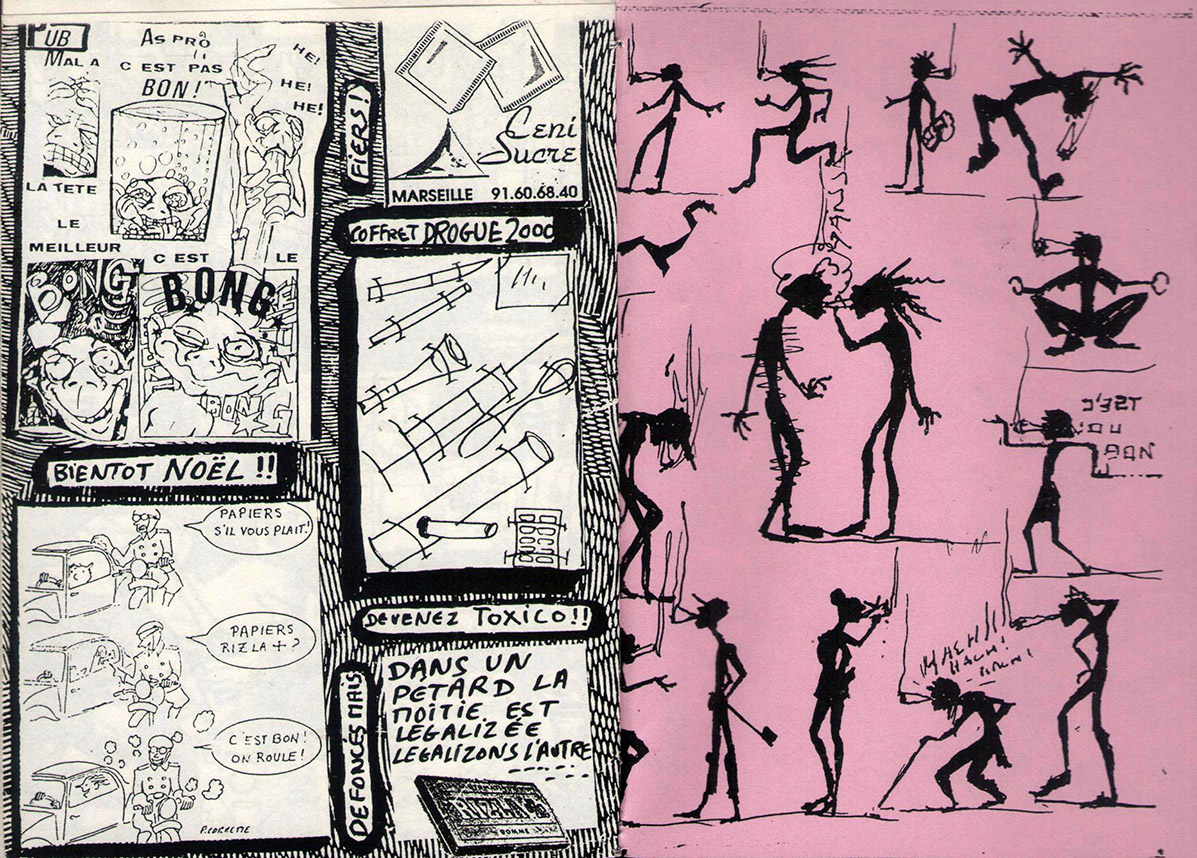 PUB
MAL A
LA TETE
AS PRO
C EST PAS
BON!
HE!
HE!
HE!
LE
MEILLEUR
C EST
LE
BONG
BONG
BONG
BIENTOT NOËL!!
PAPIERS
S'IL VOUS PLAIT!
PAPIERS
RIZLA + ?
C'EST BON!
ON ROULE!
P.CORNETTE
FIERS!
Ceni
Sucre
MARSEILLE 91.60.68.40
COFFRET DROGUE 2000
DEVENEZ TOXICO!!
DEFONCÉS MAIS
DANS UN
PETARD LA
MOITIE EST
LEGALIZÉE
LEGALIZONS L'AUTRE
C'EST
DU
BON
HACH!